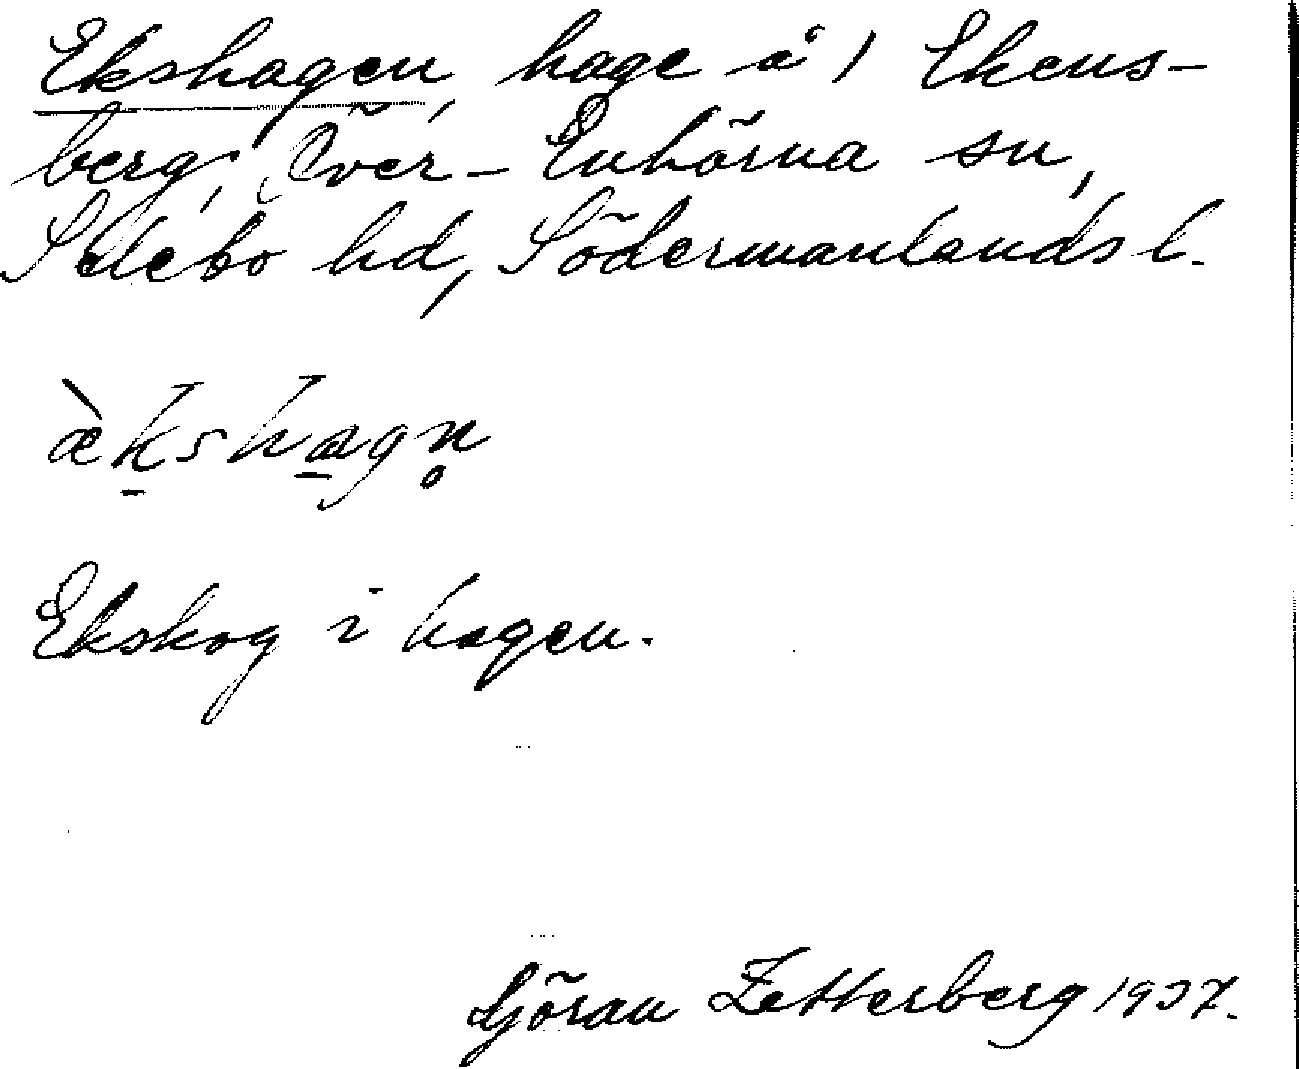 Ekshagen, hage å 1 Ekens-
berg, Över-Enhörna sn,
Selebo hd, Södermanlands l.
æ̀ḵsha̱gn̥
Ekskog i hagen.
Göran Zetterberg 1937.